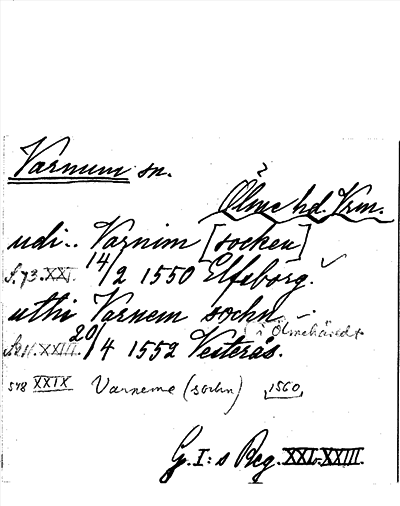 Varnum sn.
Ölme hd. Vrm.
udi.. Varnim [socken]
S. 73. XXI. 14/2 1550 Elfsborg.
uthi Varnem sochn
i Ölmehäredt
XXIII. 20/4 1552 Vesterås.
578 XXIX Varneme (sochn) 1560
G. I:s Reg. XXI. XXIII.